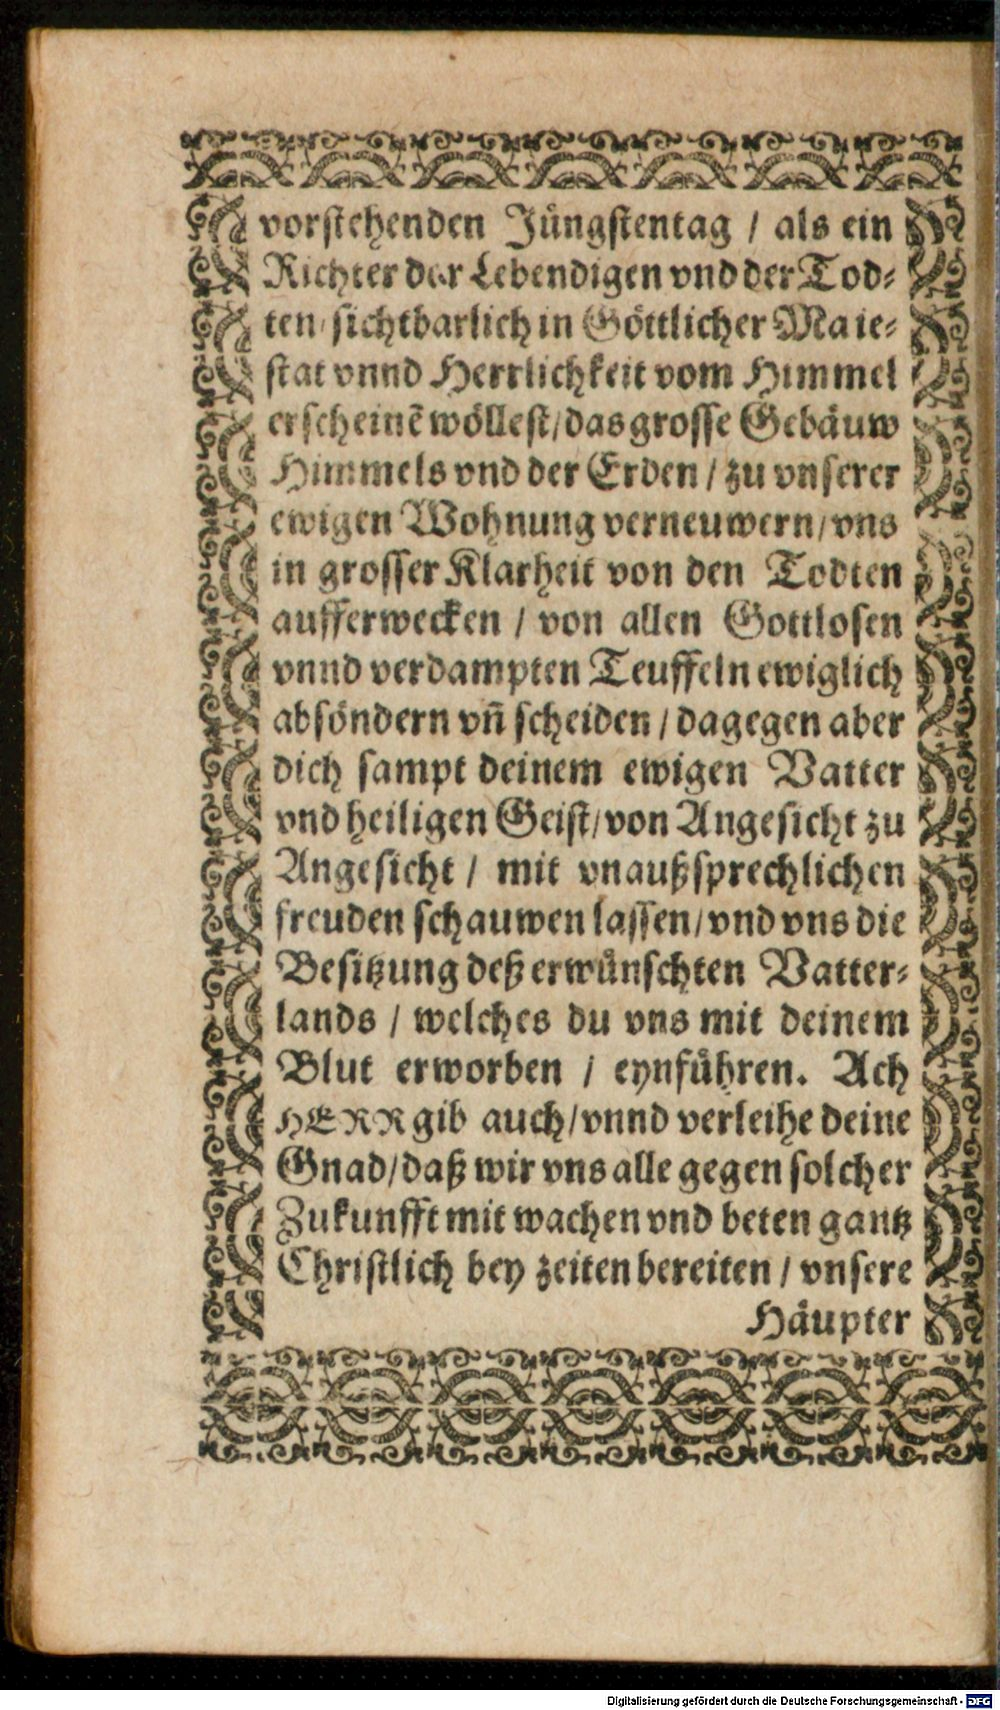 vorstehenden Jüngstentag / als ein
Richter der Lebendigen vnd der Tod-
ten / sichtbarlich in Göttlicher Maie-
stat vnnd Herrlichkeit vom Himmel
erscheinẽ wöllest / das grosse Gebäuw
Himmels vnd der Erden / zu vnserer
ewigen Wohnung verneuwern / vns
in grosser Klarheit von den Todten
aufferwecken / von allen Gottlosen
vnnd verdampten Teuffeln ewiglich
absöndern vñ scheiden / dagegen aber
dich sampt deinem ewigen Vatter
vnd heiligen Geist / von Angesicht zu
Angesicht / mit vnaußsprechlichen
freuden schauwen lassen / vnd vns die
Besitzung deß erwünschten Vatter-
lands / welches du vns mit deinem
Blut erworben / eynführen. Ach
HERR gib auch / vnnd verleihe deine
Gnad / daß wir vns alle gegen solcher
Zukunfft mit wachen vnd beten gantz
Christlich bey zeiten bereiten / vnsere
Häupter
Digitalisierung gefördert durch die Deutsche Forschungsgemeinschaft - DFG